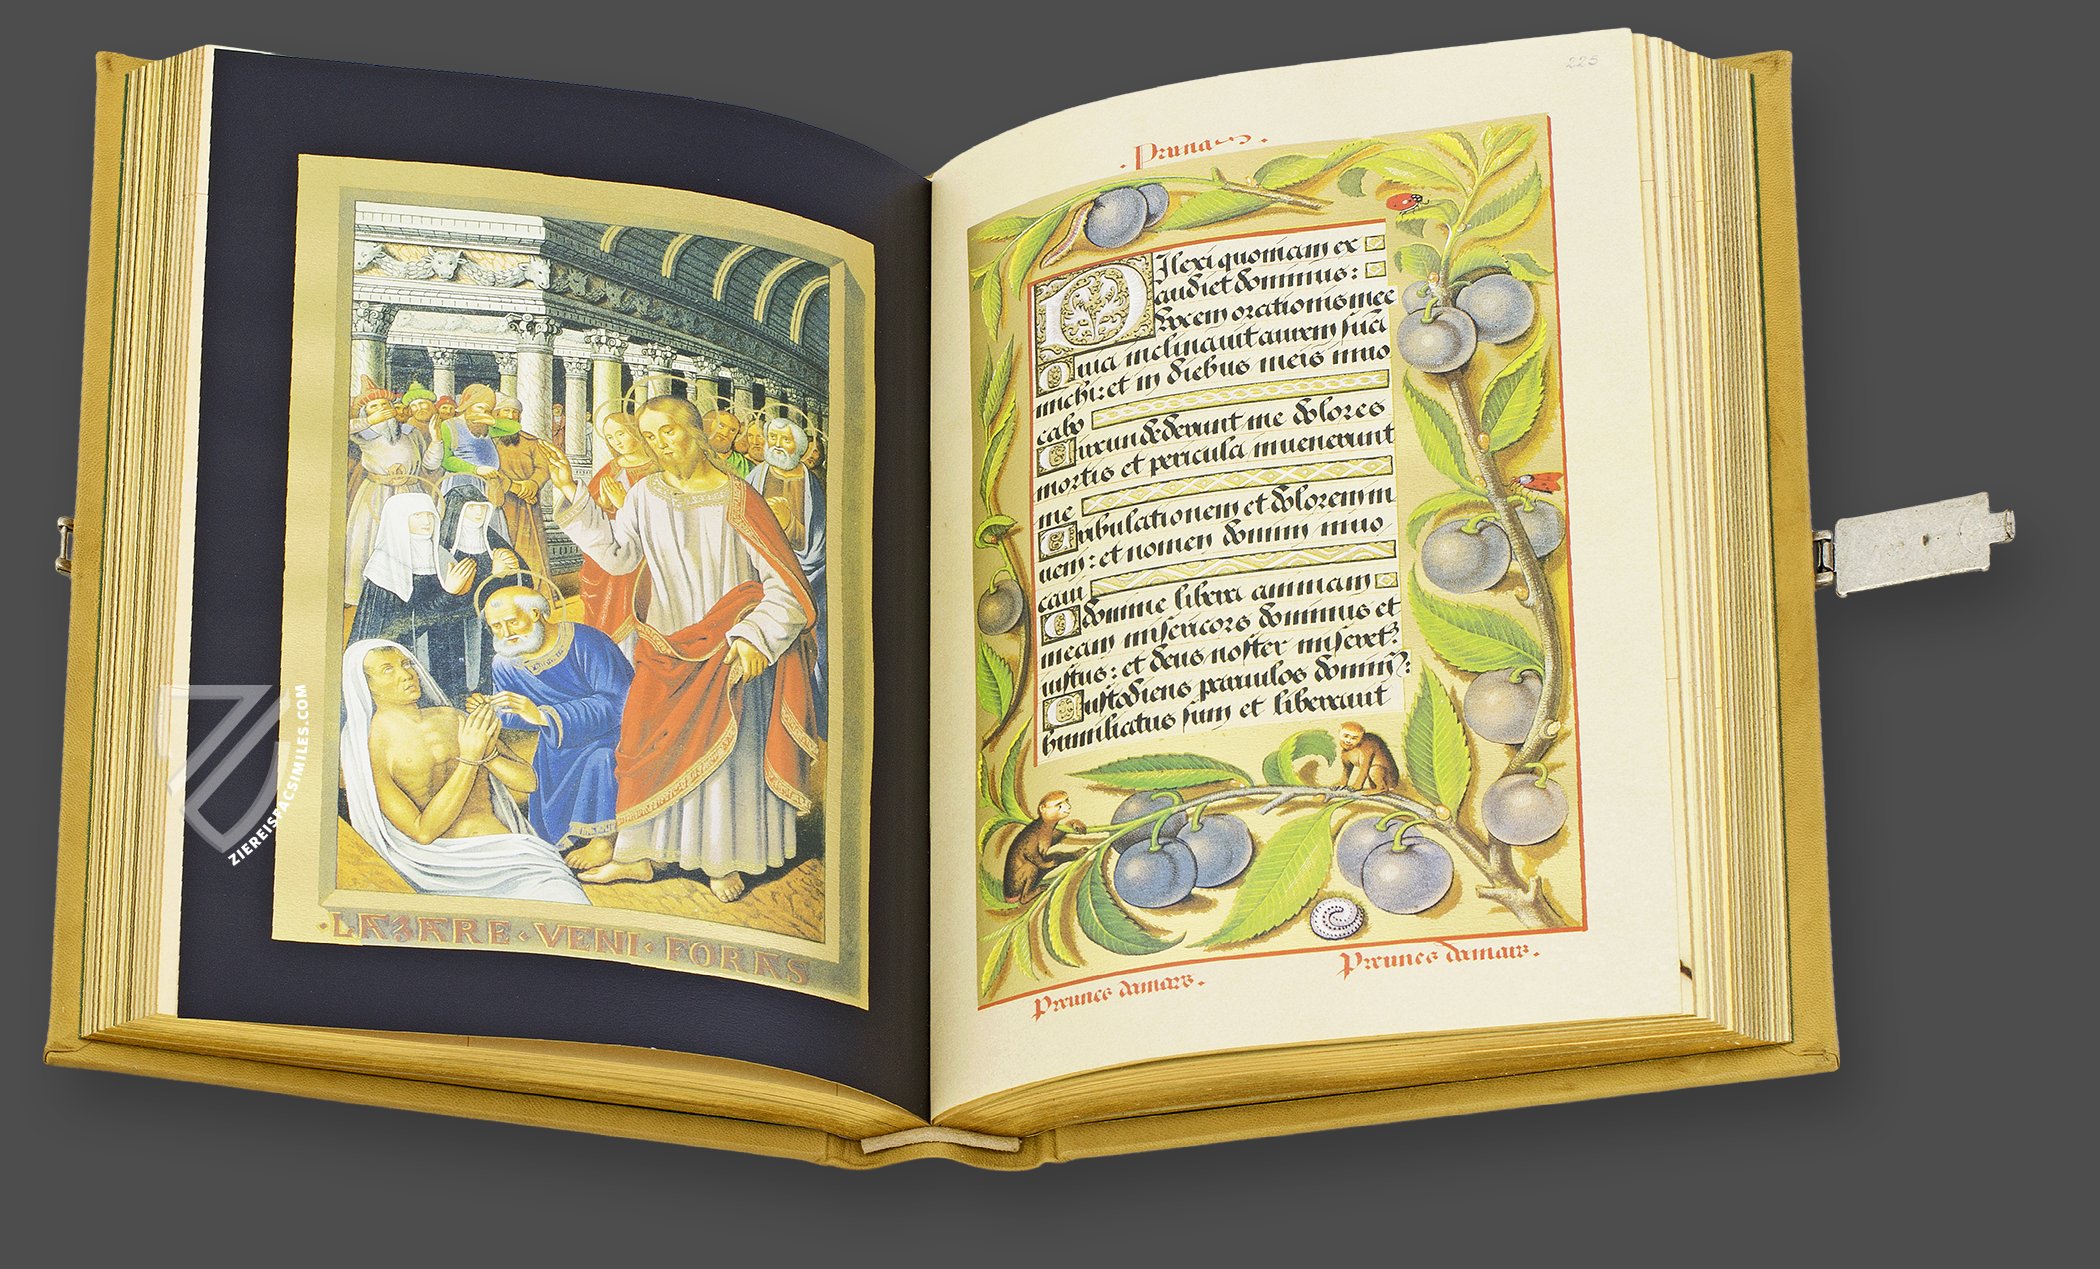 ·LAZARE·VENI·FORAS
ZIEREISFACSIMILES.COM
225
·Prunaes·
Dilexi quoniam ex
audiet dominus:
vocem orationis mee
Quia inclinauit aurem suā
michi: et in diebus meis inuo
cabo
Circundederunt me dolores
mortis et pericula inuenerunt
me
Tribulationem et dolorem in
ueni: et nomen domini inuo
caui
O domine libera animam
meam misericors dominus et
iustus: et deus noster miseret²
Custodiens paruulos domin⁹:
humiliatus sum et liberauit
Prunes damars·
Prunes damars·